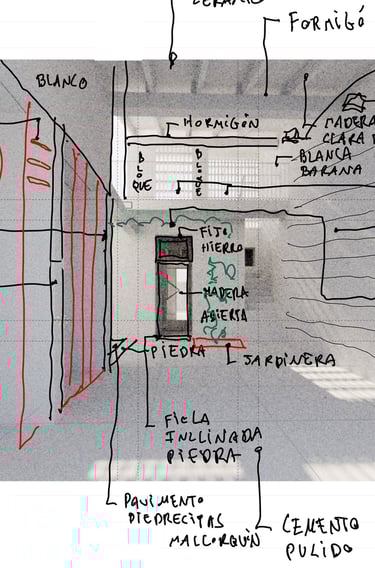 FORMIGÓ
BLANCO
HORMIGÓN
MADERA
CLARA
BLANCA
BARANA
BLOQUE
BLOQUE
FIJO
HIERRO
MADERA
ABIERTA
PIEDRA
JARDINERA
INCLINADA
PIEDRA
PAVIMENTO
PIEDRECITAS
MALLORQUIN
CEMENTO
PULIDO